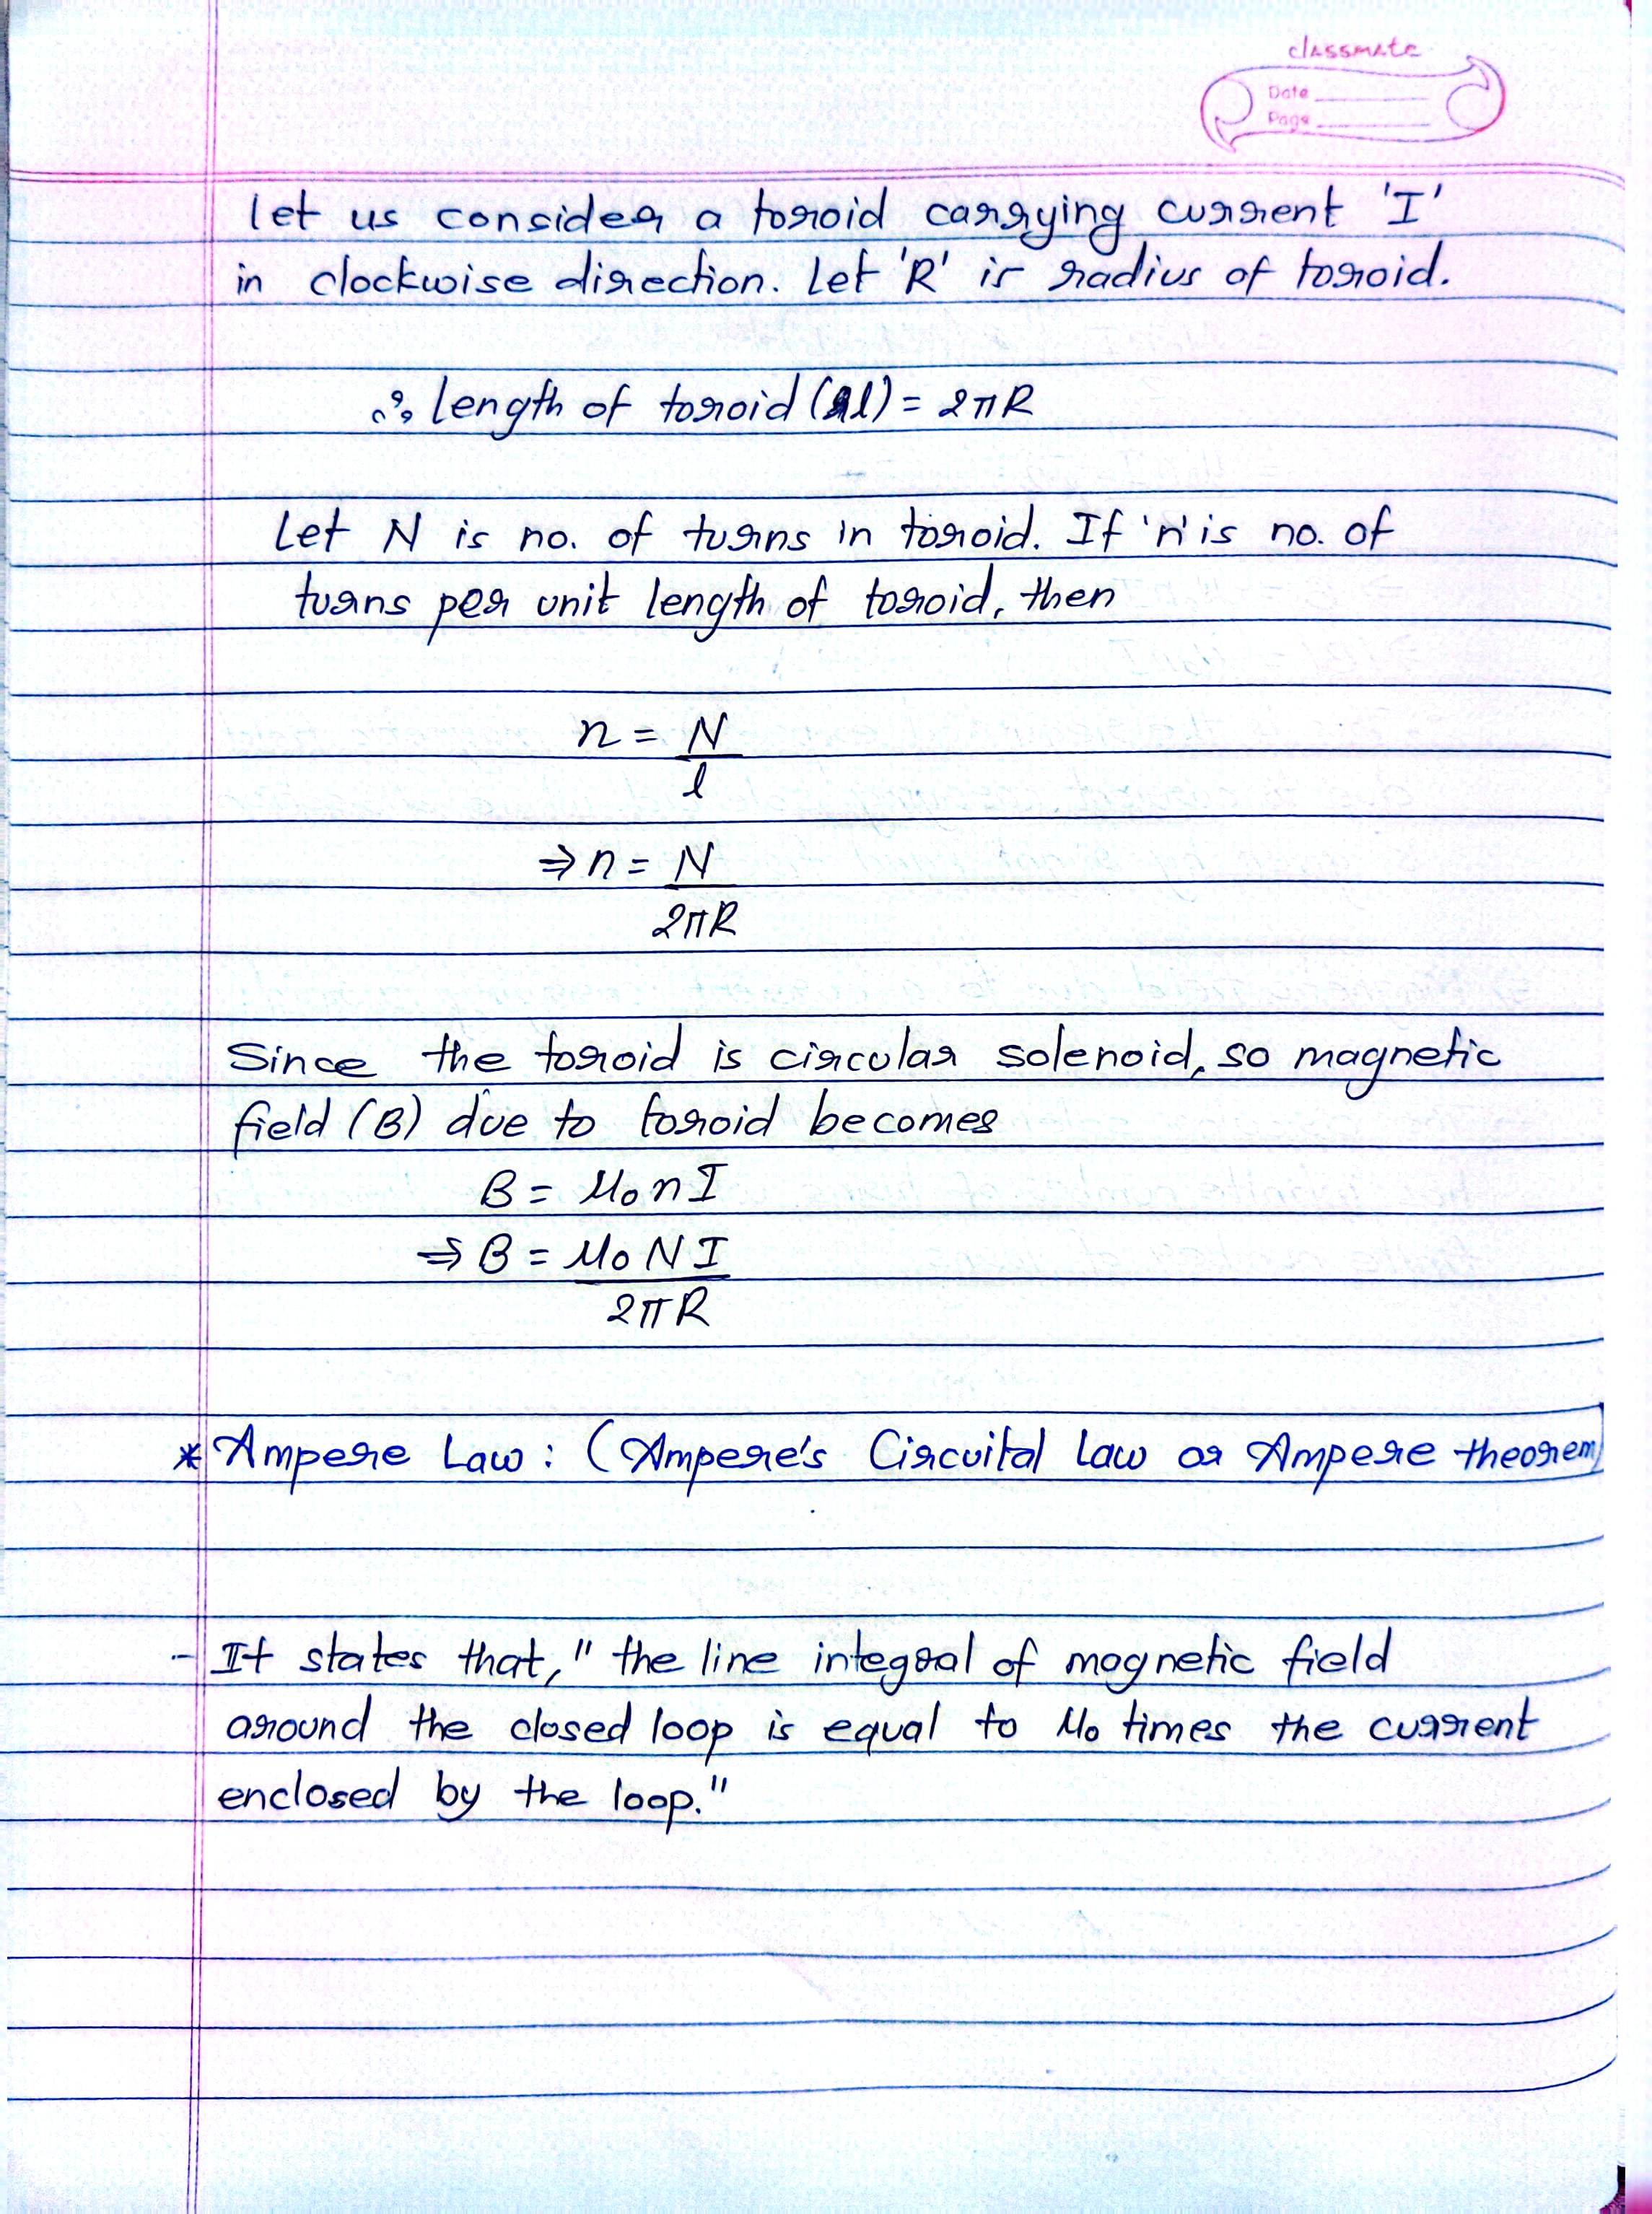 classmate
Date
Page
let us consider a toroid carrying current 'I'
in clockwise direction. Let 'R' is radius of toroid.
∴ length of toroid (l) = 2πR
Let N is no. of turns in toroid. If 'n' is no. of
turns per unit length of toroid, then
n = N
l
⇒ n = N
2πR
Since the toroid is circular solenoid, so magnetic
field (B) due to toroid becomes
B = μ₀nI
⇒ B = μ₀NI
2πR
* Ampere Law : (Ampere's Circuital Law or Ampere theorem)
- It states that, " the line integral of magnetic field
around the closed loop is equal to μ₀ times the current
enclosed by the loop."